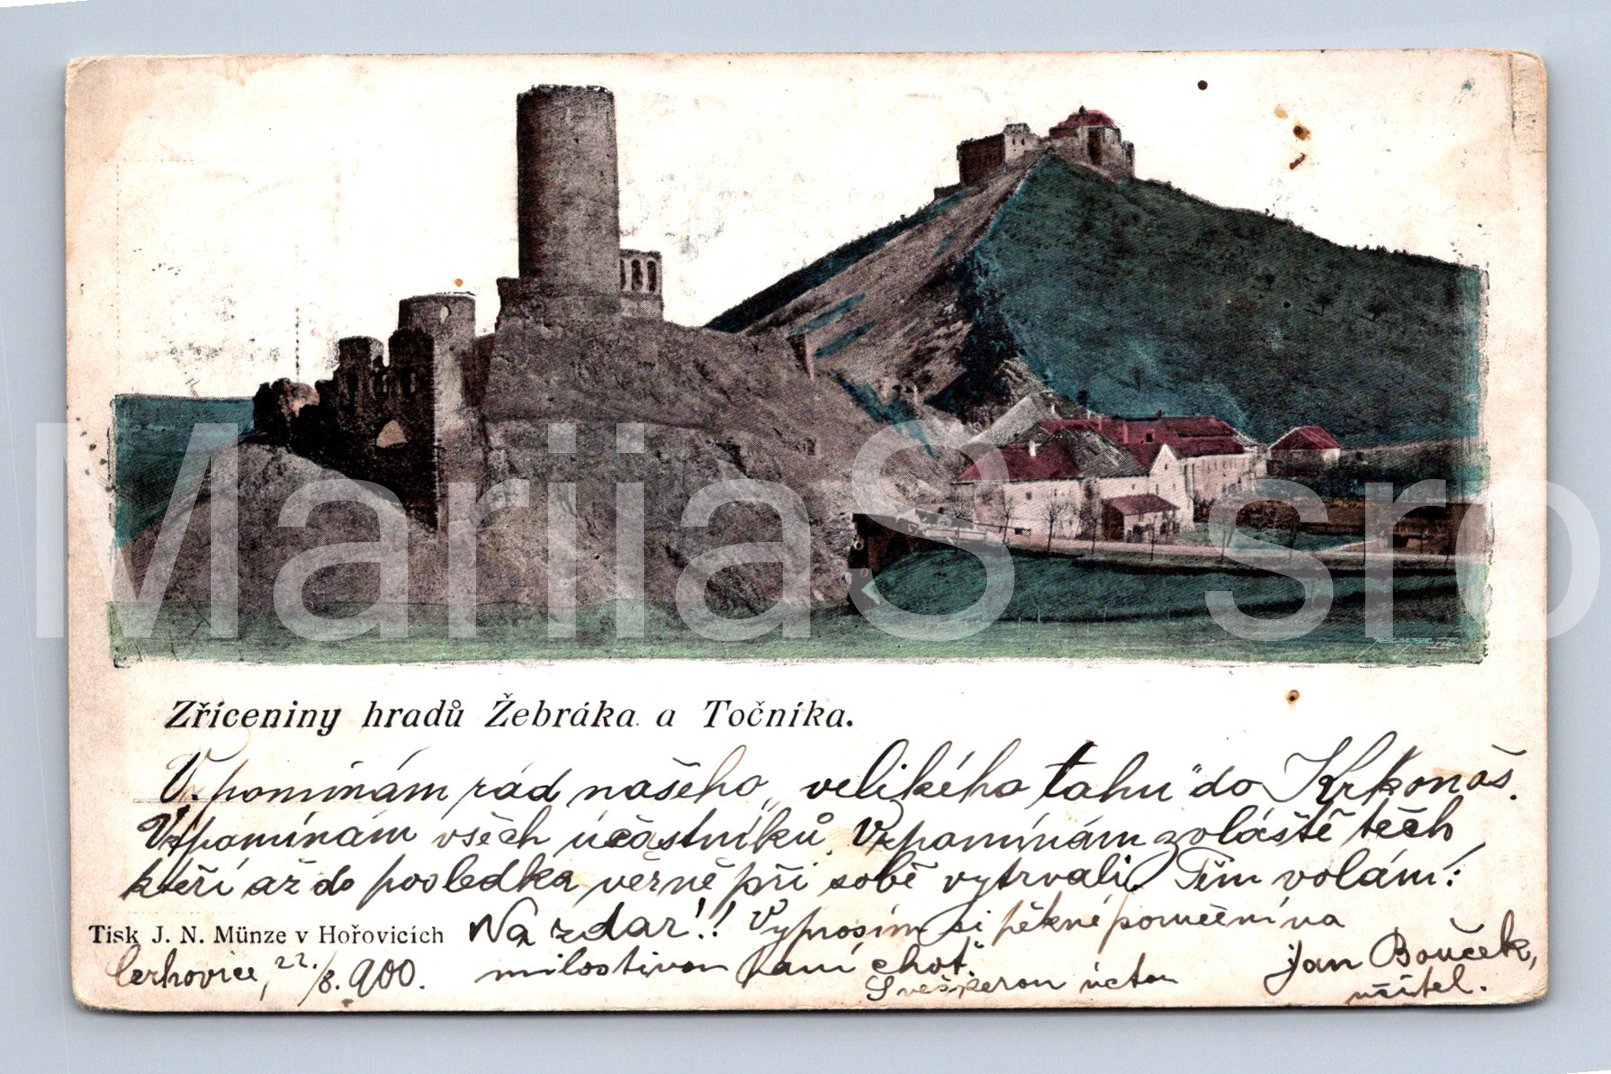 Zříceniny hradů Žebráka a Točníka.
Vzpomínám rád našeho „velikého tahu" do Krkonoš.
Vzpomínám všech účastníků. Vzpomínám zvláště těch,
kteří až do posledka věrně při sobě vytrvali. Těm volám:
Na zdar!! Vyprosím si pěkné poručení na
milostivou paní choť.
S veškerou úctou
Jan Bouček,
učitel.
Tisk J. N. Münze v Hořovicích
Cerhovice, 22./8. 900.
MariiaS sro